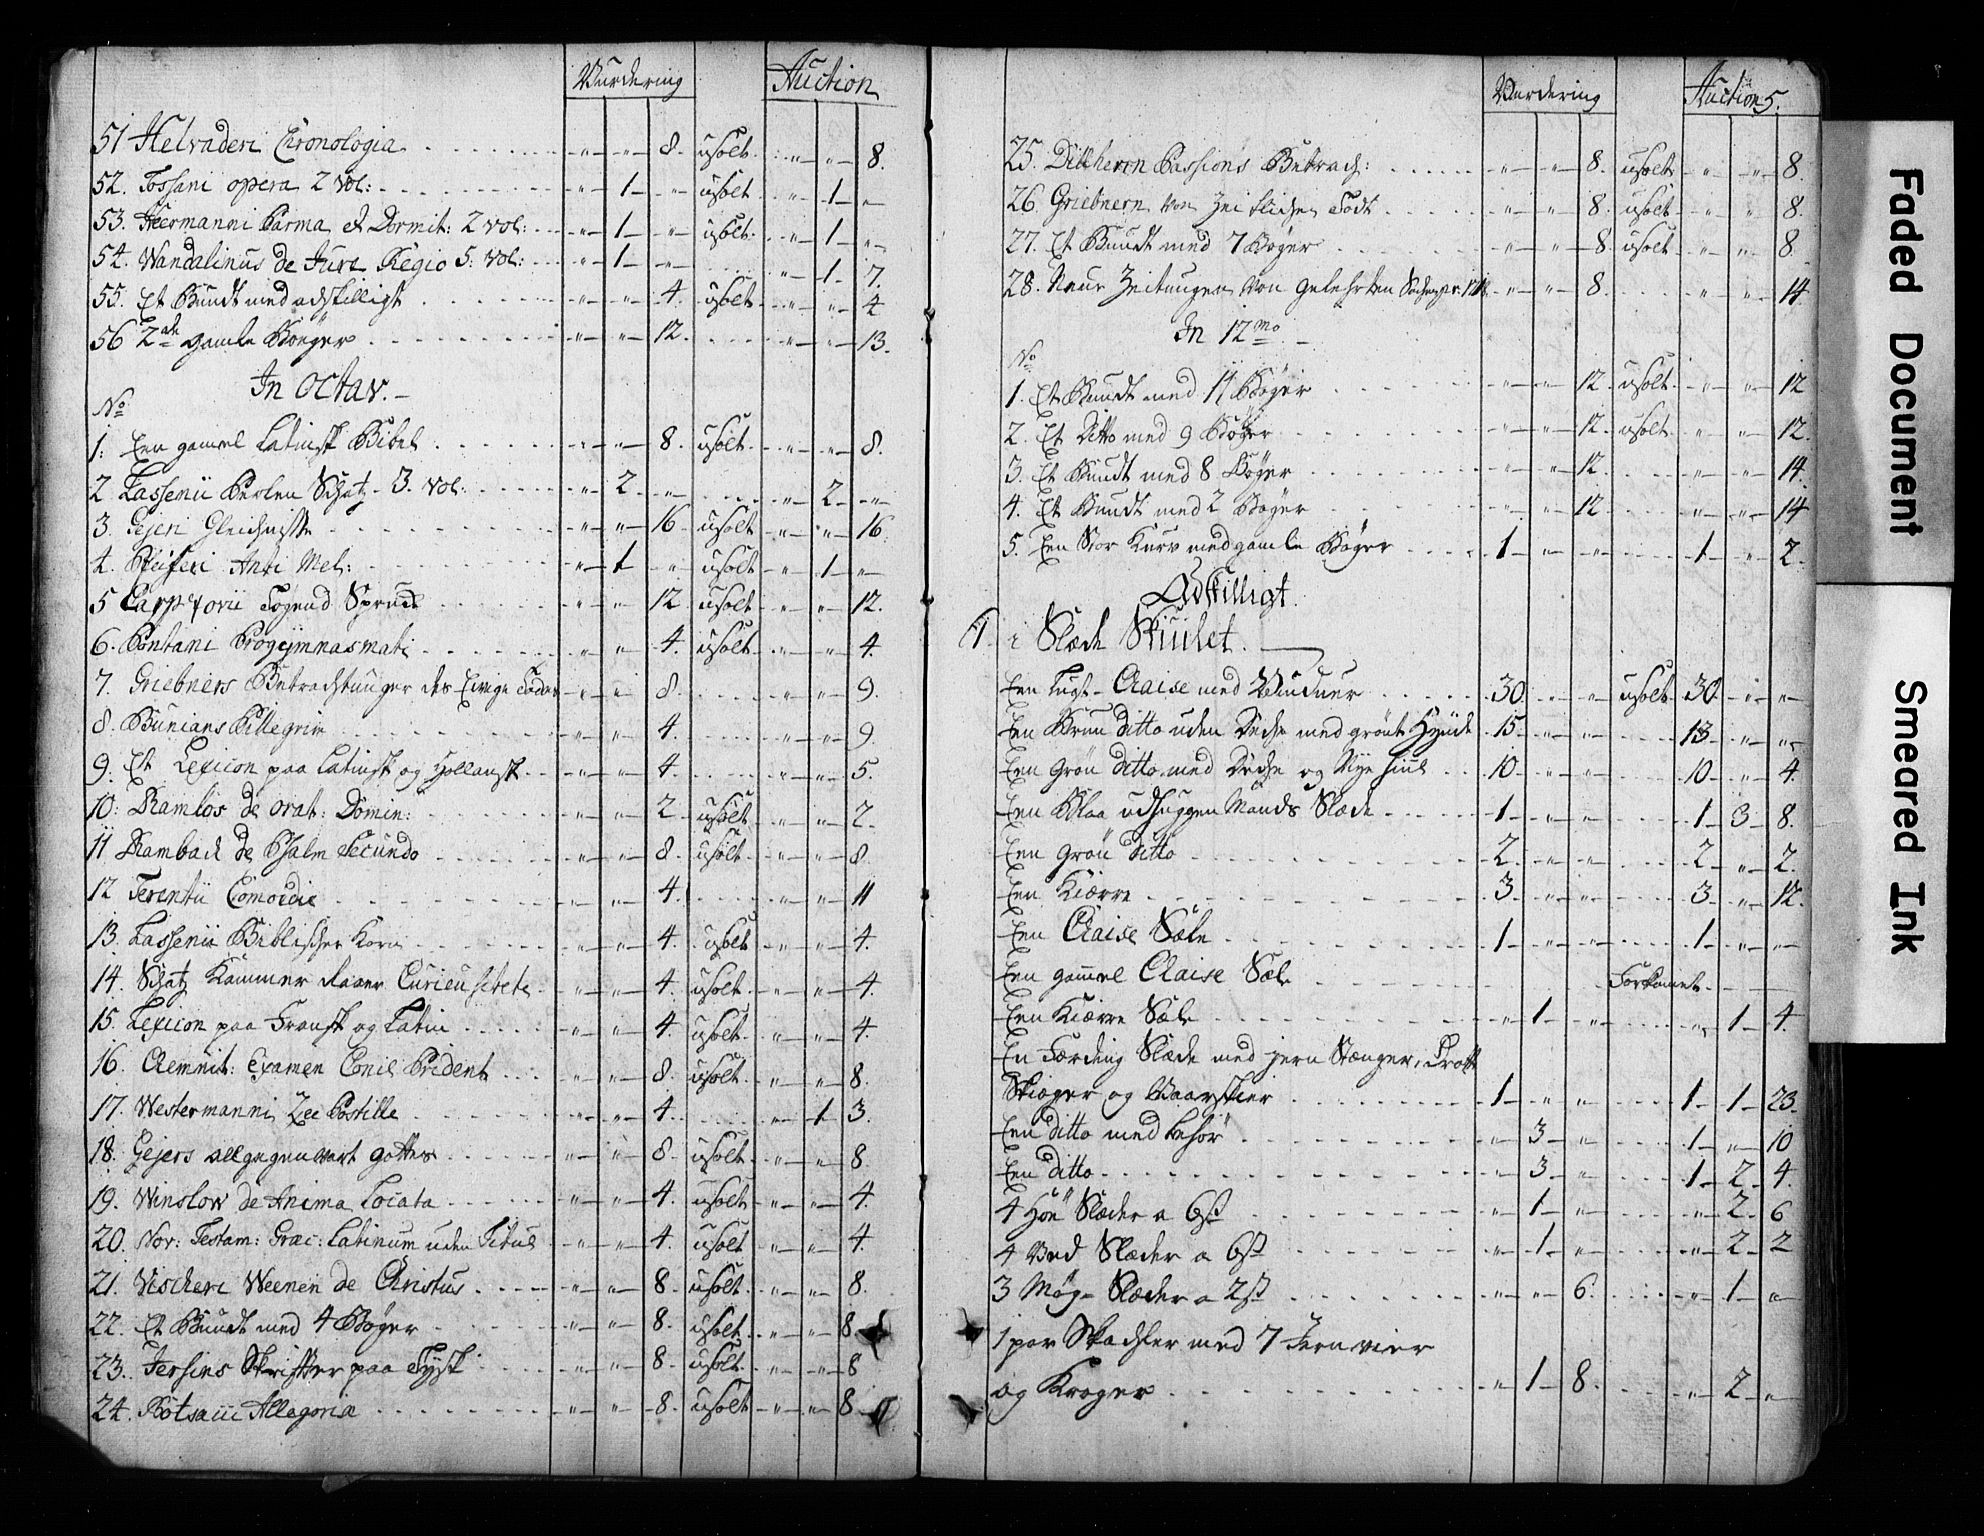 Vurdering Auction
51 Helvaderi Chronologia " " 8. usolt " " 8.
52. Tossani opera 2 Vol: " 1 " usolt " 1 "
53. Heermanni Parma et Dormit: 2 vol: " 1 " usolt " 1 "
54. Wandalinus de Jure Regio 5: vol: " 1 " " 1 7.
55. Et Bundt med adskilligt " " 4. usolt " " 4
56 2de gamle Bøger " " 12. " " 13.
In Octav.
No
1. Een gamel Latinsk Bibel " " 8. usolt " " 8.
2 Lassenii Perlen Schatz 3. Vol: " 2 " " 2 "
3. Gejeri Gleichnisse " " 16 usolt " " 16.
4. Pfeiferi Anti Mel: " 1 " usolt " 1 "
5 Carpzovii Tugend Spruch " " 12 usolt " " 12.
6. Pontani Progymnasmati " " 4. usolt " " 4.
7. Griebners Betrachtunger des Ewige Todes " " 8. " " 9.
8. Bunians Pillegrim " " 4. " " 9.
9. Et Lexicon paa Latinsk og Hollansk " " 4. " " 5.
10: Ramlos de orat: Domin: " " 2 usolt " " 2.
11 Rambach de Psalm Secundo " " 8. usolt " " 8.
12 Terentii Comoedie " " 4. " " 11
13. Lassenii Biblischer Korn " " 4. usolt " " 4.
14. Schatz Kammer Raaer Curieusitete " " 4. usolt " " 4.
15. Lexicon paa Fransk og Latin " " 4. usolt " " 4.
16. Chemnit: Examen Concil Trident " " 8. usolt " " 8.
17. Westermanni Zee Postille " " 4. " 1 3.
18. Gejers allgegenvart gottes " " 8. usolt " " 8.
19. Winslow de Anima Locata " " 4. usolt " " 4.
20. Nov: Testam: Græc: Latinum uden Titul " " 4. usolt " " 4.
21. Vischeri Weenen de Christus " " 8. usolt " " 8.
22. Et Bundt med 4 Bøger " " 8. usolt " " 8.
23. Jersins Skrifter paa Tysk " " 8. usolt " " 8
24. Botsacii Allegoria " " 8. usolt " " 8
Vurdering Auction 5.
25. Dillherrn Passions Betrach: " " 8. usolt " " 8.
26. Griebnern von Zeitlichen Todt " " 8. usolt " " 8.
27. Et Bundt med 7 Bøger " " 8 usolt " " 8.
28. Neue Zeitungen von gelehrten " " 8. " " 14
In 12mo
No
1. Et Bundt med 11 Bøger " " 12 usolt " " 12
2. Et Ditto med 9 Bøger " " 12. usolt " " 12.
3. Et Bundt med 8 Bøger " " 12. " " 14.
4. Et Bundt med 2 Bøger " " 12 " " 14
5. Een Stor Kurv med gamle Bøger 1 " " 1 " 2.
Adskilligt.
1. i Slæde Skiulet.
Een Lugt-Chaise med Vinduer 30. " " usolt 30. " "
Een Brun ditto uden Deche med grønt Hynde 15. " " 13 " "
Een Grøn ditto med Deche og Nye hiul 10 " " 10 " 4.
Een Blaa udhuggen Mands Slæde 1 " " 1 3 8.
Een grøn ditto 2 " " 2 " 2.
Een Kiærre 3. " " 3 " 12.
Een Chaise Sæle 1 " " 1 " "
Een gamel Chaise Sæle Forkomet
Een Kiærre Sæle " 1 " " 1 4
En Færding Slæde med jern Stænger,
Skioger og Vaarskier 1 " " 1 1 23.
Een ditto med behør " 3 " 1 " 10
Een ditto " 3 " 1 2 4.
4 Høe Slæder a 6 s " 1 " " 2 6
4 Ved Slæder a 6 s " 1 " " 2 2
3 Møg-Slæder a 2 s " " 6. " 1 "
1 par Skachler med 7 Jern vier
og Kroger " 1 8. " 2 "
Faded Document
Smeared Ink